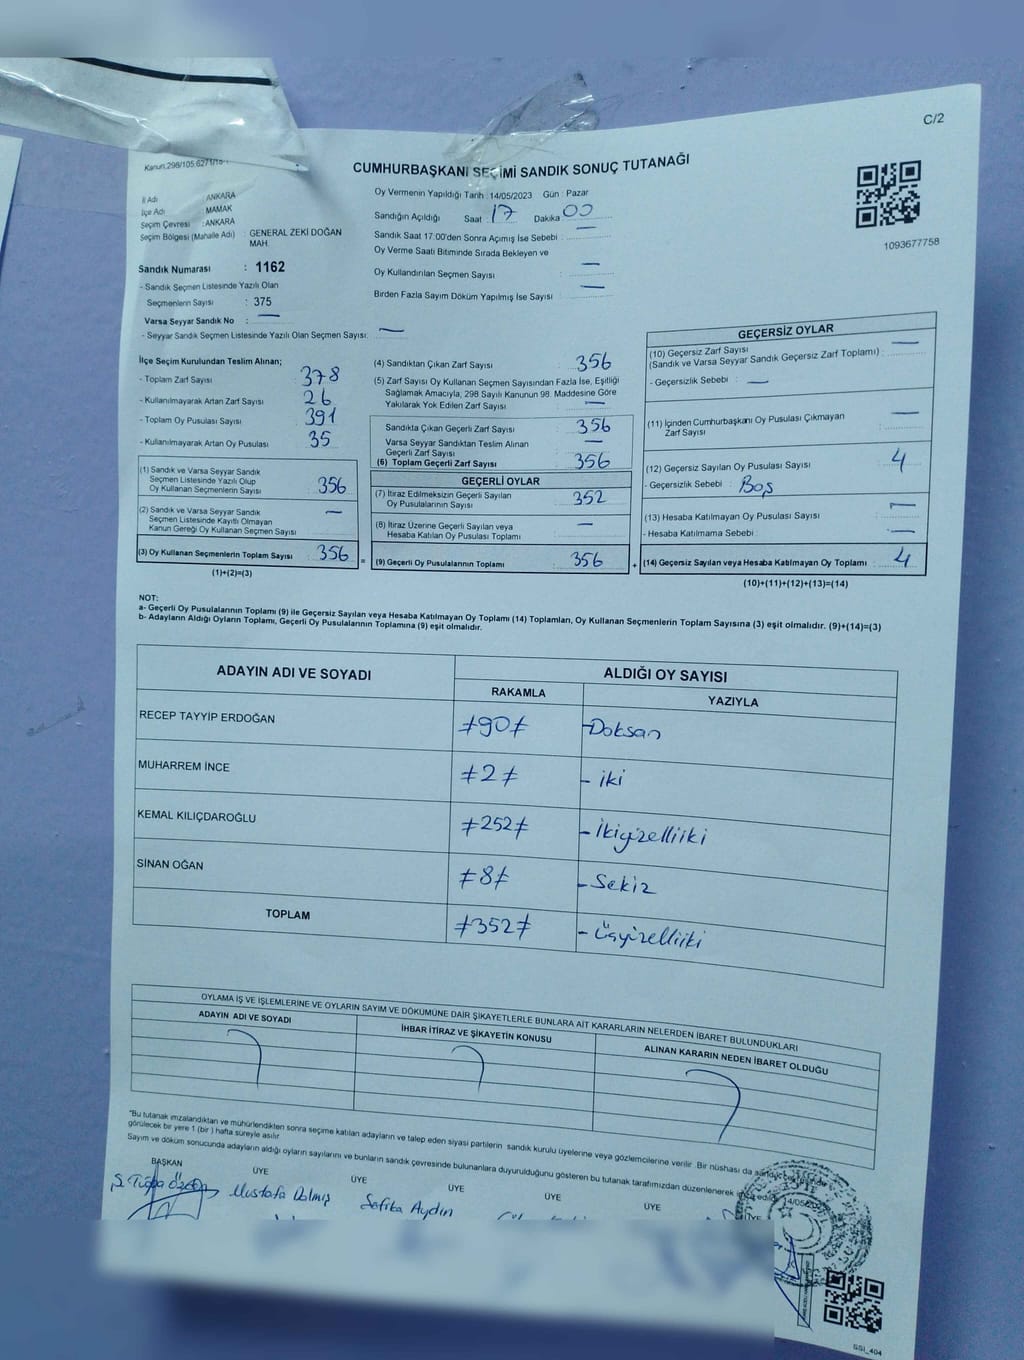 C/2
CUMHURBAŞKANI SEÇİMİ SANDIK SONUÇ TUTANAĞI
İl Adı : ANKARA
İlçe Adı : MAMAK
Seçim Çevresi : ANKARA
Seçim Bölgesi (Mahalle Adı) : GENERAL ZEKİ DOĞAN
MAH.
Sandık Numarası : 1162
- Sandık Seçmen Listesinde Yazılı Olan
Seçmenlerin Sayısı : 375
Varsa Seyyar Sandık No : —
- Seyyar Sandık Seçmen Listesinde Yazılı Olan Seçmen Sayısı: —
Oy Vermenin Yapıldığı Tarih :14/05/2023 Gün : Pazar
Sandığın Açıldığı Saat : 17 Dakika 00
Sandık Saat 17:00'den Sonra Açımış İse Sebebi : —
Oy Verme Saati Bitiminde Sırada Bekleyen ve
Oy Kullandırılan Seçmen Sayısı : —
Birden Fazla Sayım Döküm Yapılmış İse Sayısı : —
1093677758
İlçe Seçim Kurulundan Teslim Alınan;
- Toplam Zarf Sayısı : 378
- Kullanılmayarak Artan Zarf Sayısı : 26
- Toplam Oy Pusulası Sayısı : 391
- Kullanılmayarak Artan Oy Pusulası : 35
(1) Sandık ve Varsa Seyyar Sandık
Seçmen Listesinde Yazılı Olup
Oy Kullanan Seçmenlerin Sayısı : 356
(2) Sandık ve Varsa Seyyar Sandık
Seçmen Listesinde Kayıtlı Olmayan
Kanun Gereği Oy Kullanan Seçmen Sayısı : —
(3) Oy Kullanan Seçmenlerin Toplam Sayısı : 356 =
(1)+(2)=(3)
(4) Sandıktan Çıkan Zarf Sayısı : 356
(5) Zarf Sayısı Oy Kullanan Seçmen Sayısından Fazla İse, Eşitliği
Sağlamak Amacıyla, 298 Sayılı Kanunun 98. Maddesine Göre
Yakılarak Yok Edilen Zarf Sayısı : —
Sandıkta Çıkan Geçerli Zarf Sayısı : 356
Varsa Seyyar Sandıktan Teslim Alınan
Geçerli Zarf Sayısı : —
(6) Toplam Geçerli Zarf Sayısı : 356
GEÇERLİ OYLAR
(7) İtiraz Edilmeksizin Geçerli Sayılan
Oy Pusulalarının Sayısı : 352
(8) İtiraz Üzerine Geçerli Sayılan veya
Hesaba Katılan Oy Pusulası Toplamı : —
(9) Geçerli Oy Pusulalarının Toplamı : 356 +
GEÇERSİZ OYLAR
(10) Geçersiz Zarf Sayısı
(Sandık ve Varsa Seyyar Sandık Geçersiz Zarf Toplamı) : —
- Geçersizlik Sebebi : —
(11) İçinden Cumhurbaşkanı Oy Pusulası Çıkmayan
Zarf Sayısı : —
(12) Geçersiz Sayılan Oy Pusulası Sayısı : 4
- Geçersizlik Sebebi : Boş
(13) Hesaba Katılmayan Oy Pusulası Sayısı : —
- Hesaba Katılmama Sebebi : —
(14) Geçersiz Sayılan veya Hesaba Katılmayan Oy Toplamı : 4
(10)+(11)+(12)+(13)=(14)
NOT:
a- Geçerli Oy Pusulalarının Toplamı (9) ile Geçersiz Sayılan veya Hesaba Katılmayan Oy Toplamı (14) Toplamları, Oy Kullanan Seçmenlerin Toplam Sayısına (3) eşit olmalıdır. (9)+(14)=(3)
b- Adayların Aldığı Oyların Toplamı, Geçerli Oy Pusulalarının Toplamına (9) eşit olmalıdır.
ADAYIN ADI VE SOYADI ALDIĞI OY SAYISI
RAKAMLA YAZIYLA
RECEP TAYYİP ERDOĞAN ≠90≠ -Doksan
MUHARREM İNCE ≠2≠ -iki
KEMAL KILIÇDAROĞLU ≠252≠ -İkiyüzelliiki
SİNAN OĞAN ≠8≠ -Sekiz
TOPLAM ≠352≠ -Üçyüzelliiki
OYLAMA İŞ VE İŞLEMLERİNE VE OYLARIN SAYIM VE DÖKÜMÜNE DAİR ŞİKAYETLERLE BUNLARA AİT KARARLARIN NELERDEN İBARET BULUNDUKLARI
ADAYIN ADI VE SOYADI İHBAR İTİRAZ VE ŞİKAYETİN KONUSU ALINAN KARARIN NEDEN İBARET OLDUĞU
*Bu tutanak imzalandıktan ve mühürlendikten sonra seçime katılan adayların ve talep eden siyasi partilerin sandık kurulu üyelerine veya gözlemcilerine verilir. Bir nüshası da
görülecek bir yere 1 (bir) hafta süreyle asılır.
Sayım ve döküm sonucunda adayların aldığı oyların sayılarını ve bunların sandık çevresinde bulunanlara duyurulduğunu gösteren bu tutanak tarafımızdan düzenlenerek
BAŞKAN ÜYE ÜYE ÜYE ÜYE ÜYE ÜYE
Mustafa Dalmış Safika Aydın
SSI_404